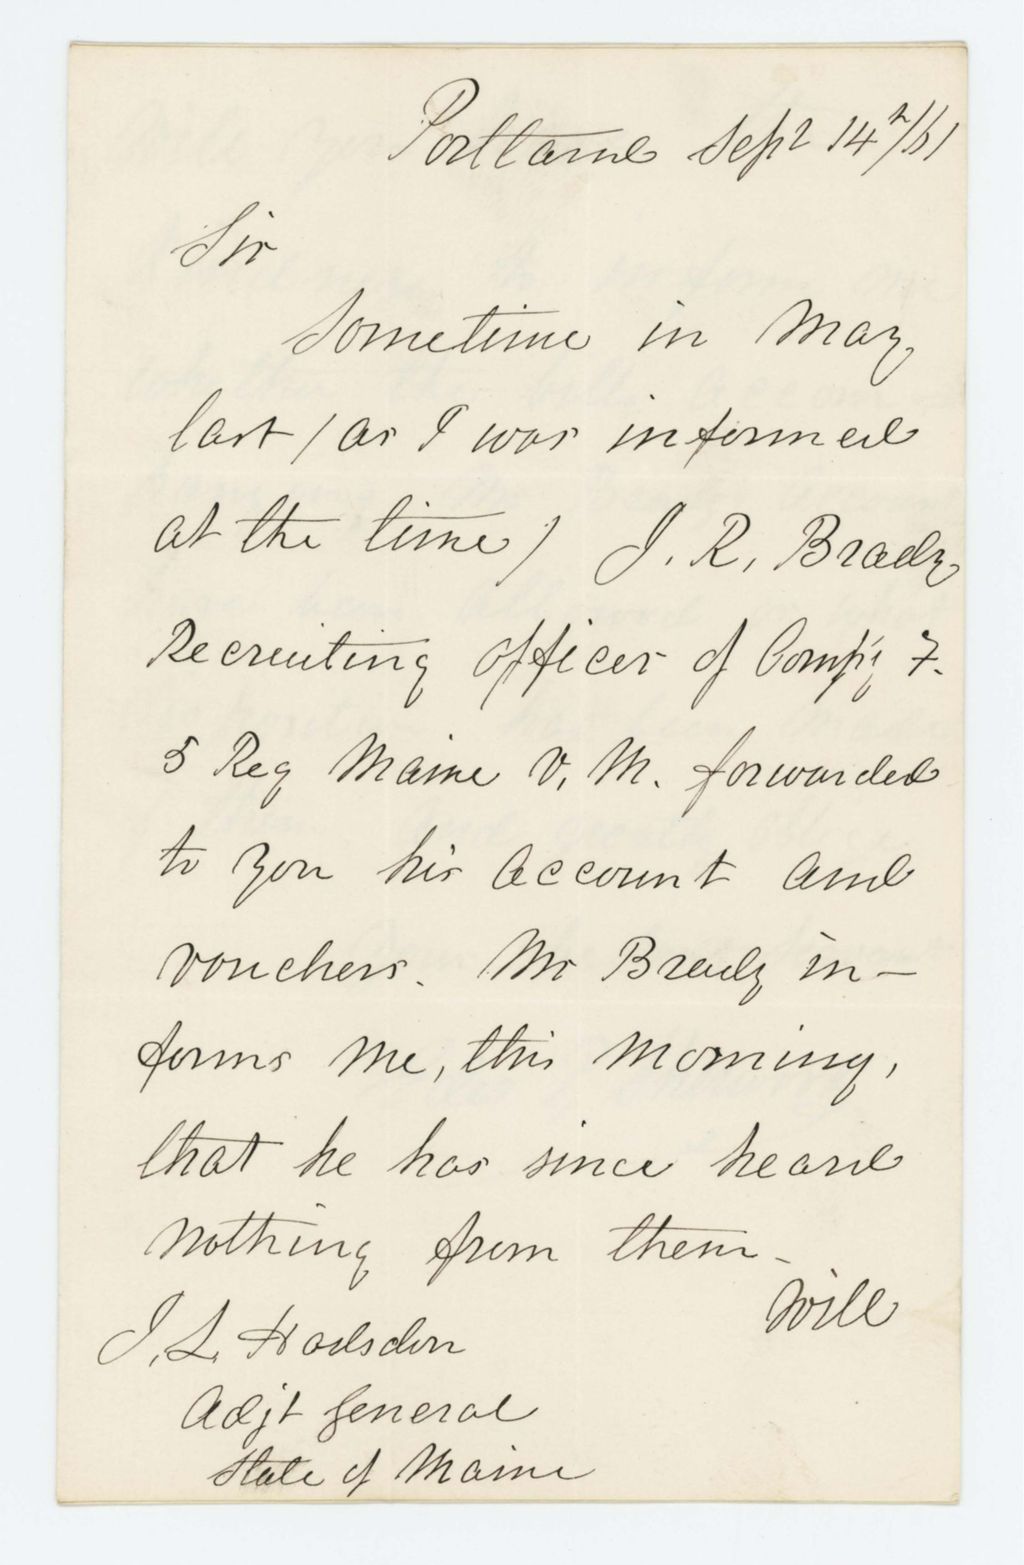 Portland Sept 14th/61
Sir
Sometime in May
last (as I was informed
at the time) J. R. Brady
Recruiting Officer of Comp'y F.
5 Reg Maine V. M. forwarded
to you his account and
vouchers. Mr Brady in-
forms me, this morning,
that he has since heard
nothing from them -
Will
J. L. Hodsdon
Adjt General
State of Maine